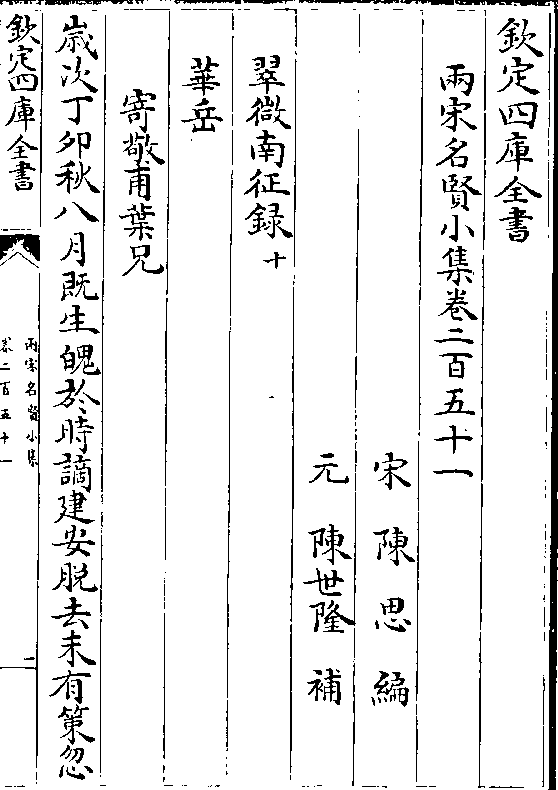 欽定四庫全書
兩宋名賢小集卷二百五十一
宋 陳思 編
元 陳世隆 補
翠微南征録十
華岳
寄敬甫葉兄
歳次丁卯秋八月既生魄於時謫建安脫去未有策忽
欽定四庫全書
兩宋名賢小集
卷二百五十一